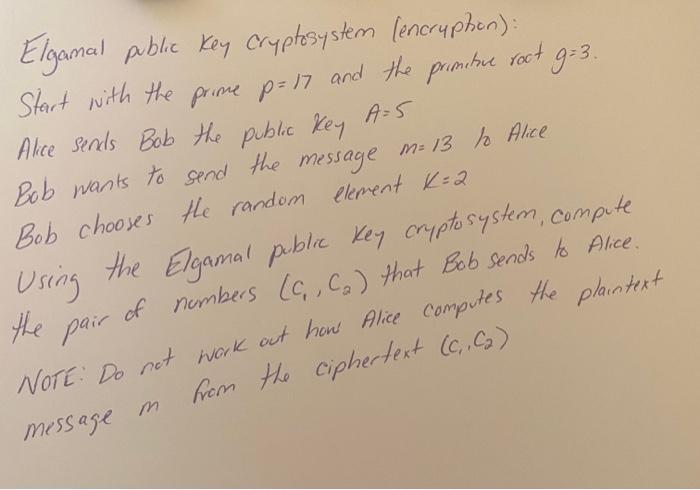 Elgamal public key cryptosystem (encryption):
Start with the prime p=17 and the primitive root g=3.
Alice sends Bob the public key A=5
Bob wants to send the message m=13 to Alice
Bob chooses the random element K=2
Using the Elgamal public key cryptosystem, compute
the pair of numbers (C₁, C₂) that Bob sends to Alice.
NOTE: Do not work out how Alice computes the plaintext
message m from the ciphertext (C₁, C₂)